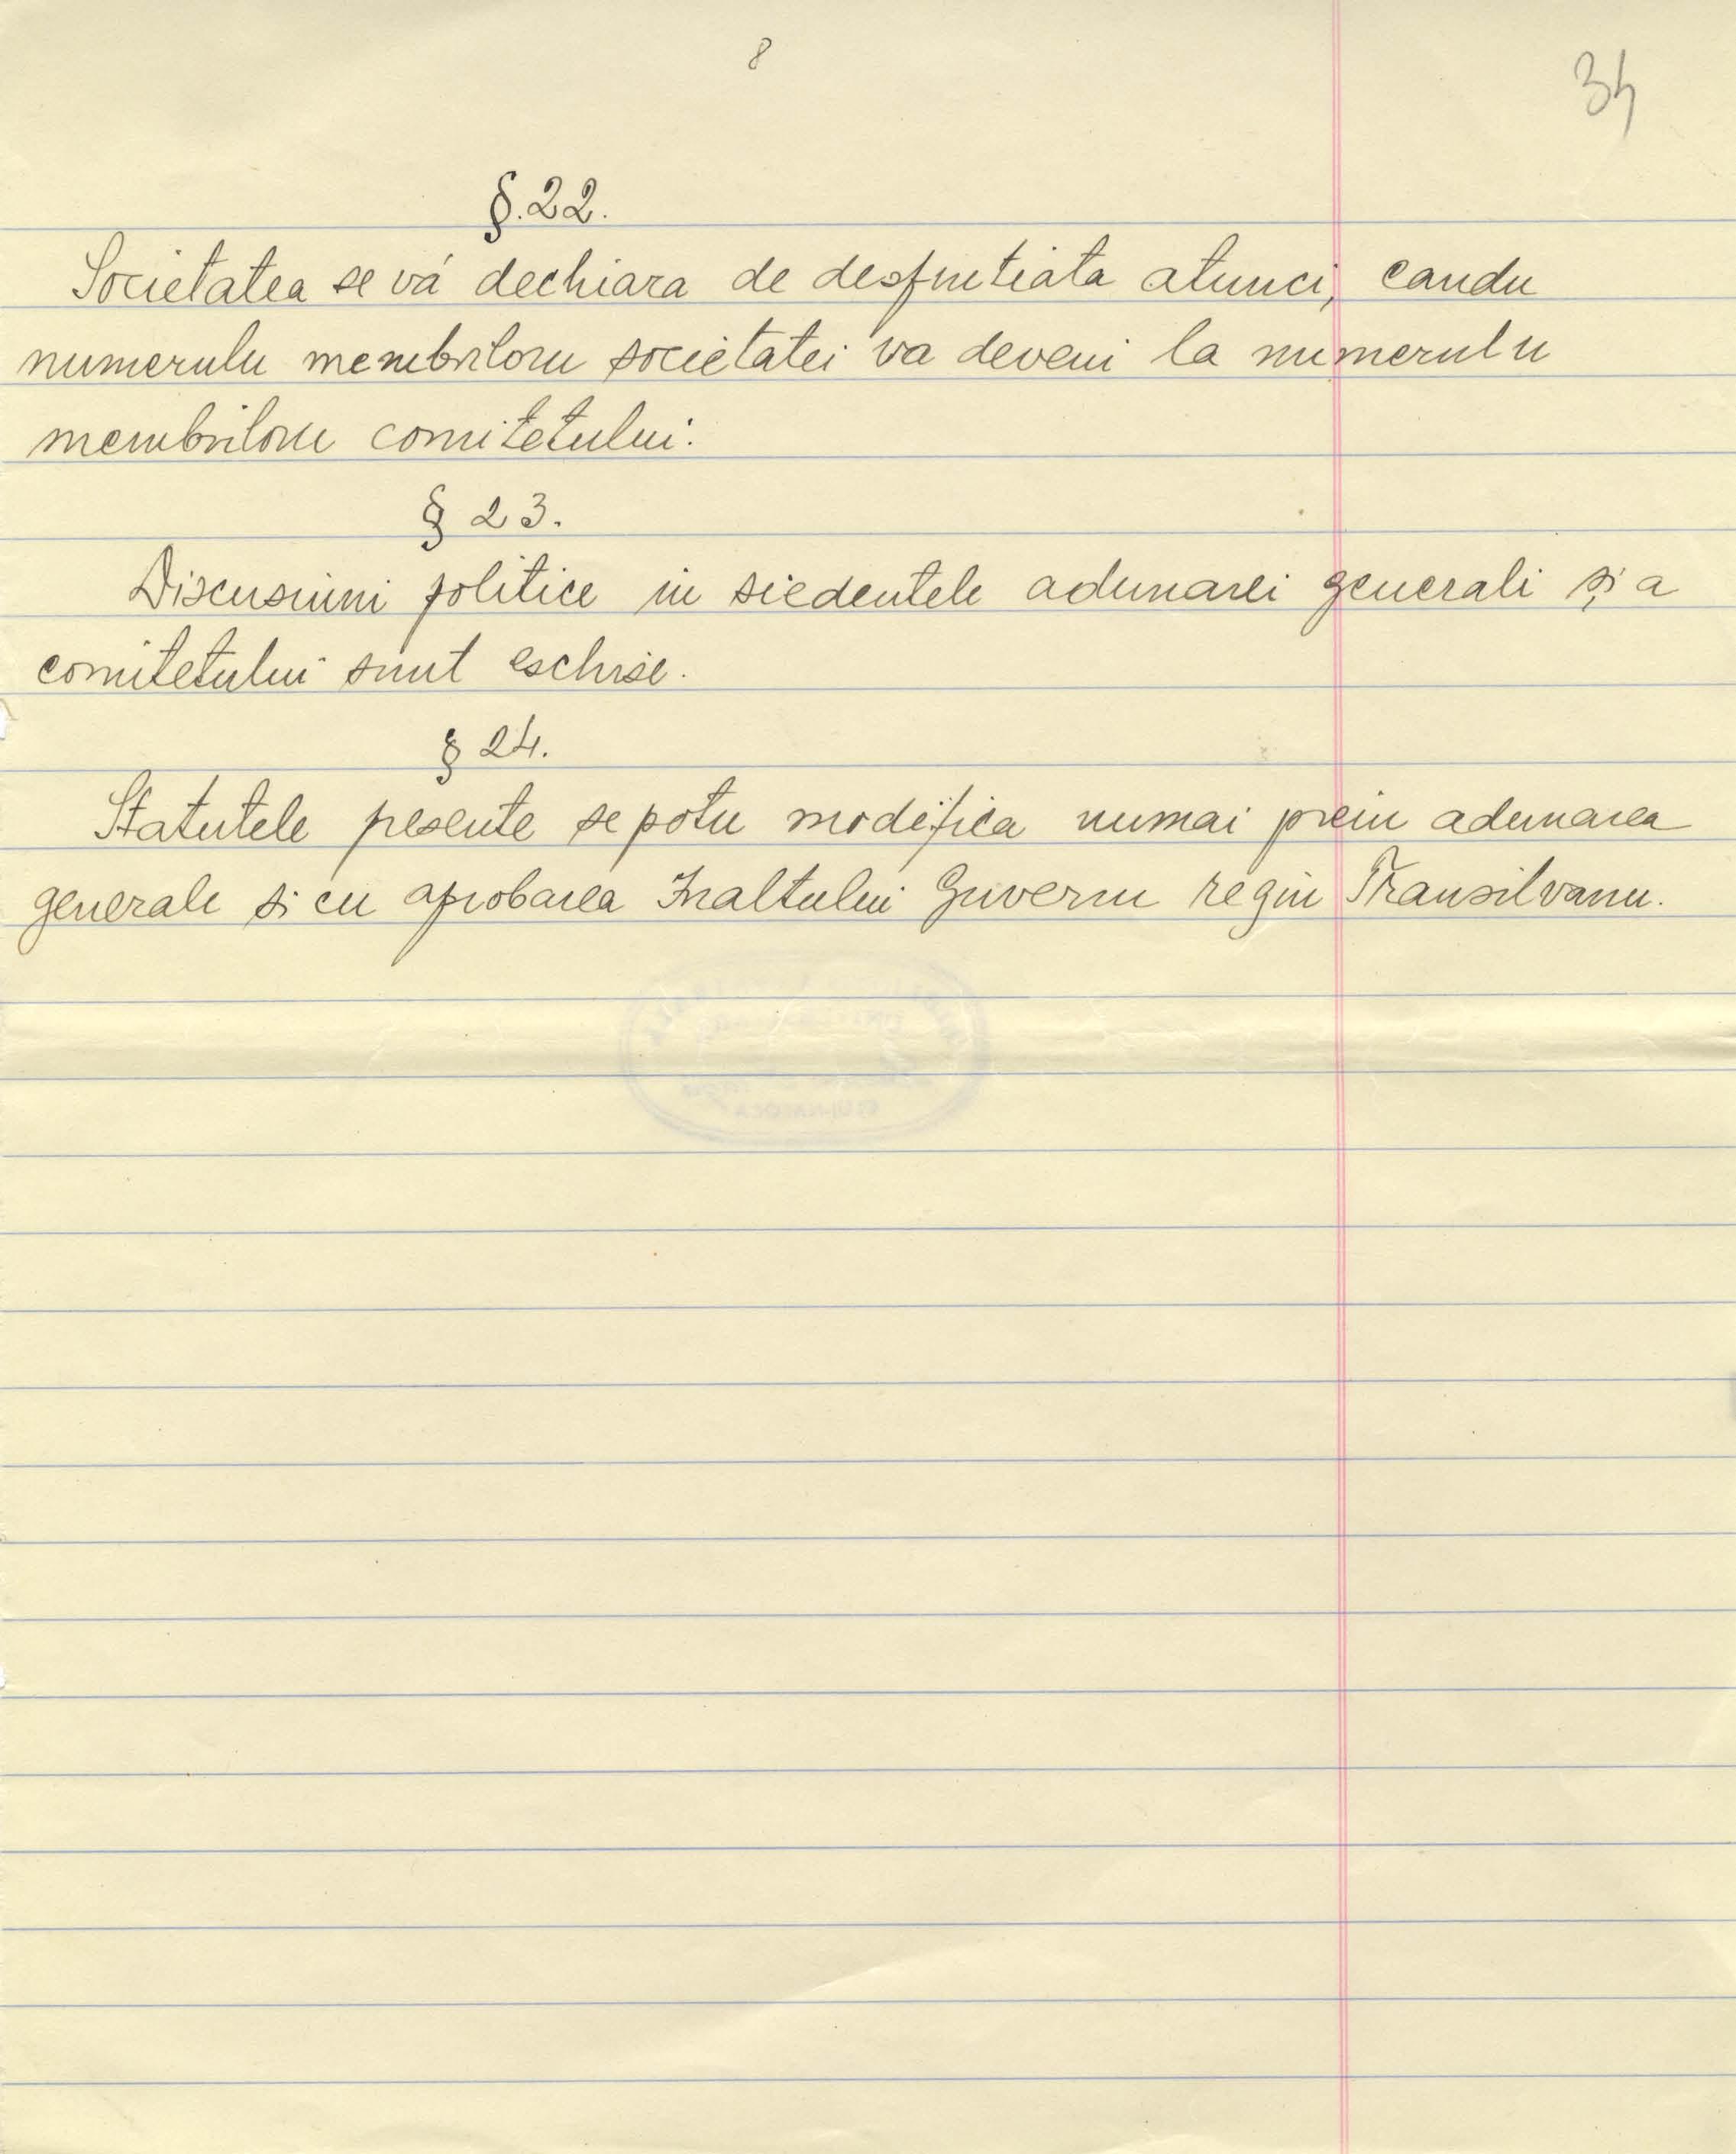 8
34
§.22.
Societatea se vá dechiara de desfiitiata atunci, candu
numerulu membriloru societatei va deveni la numerulu
membriloru comitetului.
§ 23.
Discusiuni politice in siedentele adunarei generali și a
comitetului sunt eschise.
§ 24.
Statutele presente se potu modifica numai prein adunarea
generale si cu aprobarea Inaltului Guvernu regiu Transilvanu.
CLUJ-NAPOCA